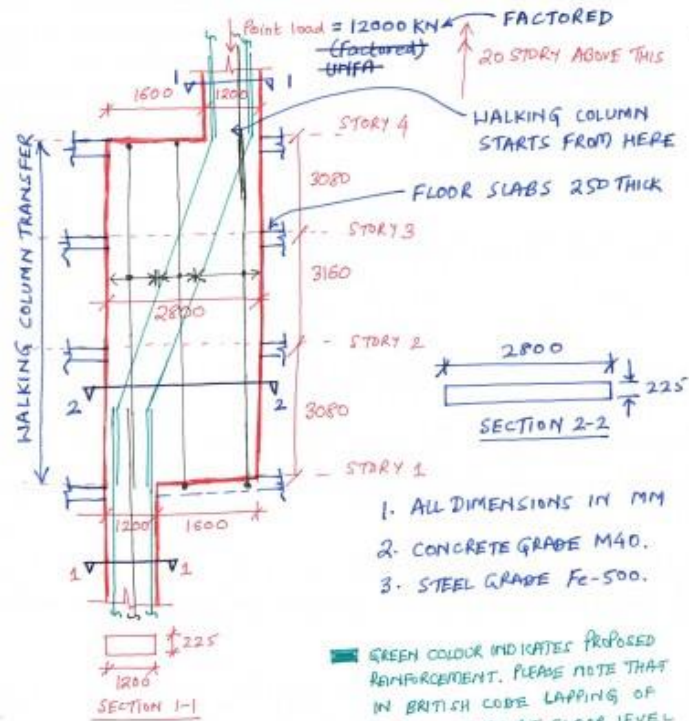 Point load = 12000 KN
FACTORED
(Factored)
UNFA
20 STORY ABOVE THIS
1 1
1600 1200
STORY 4
WALKING COLUMN
STARTS FROM HERE
3080
FLOOR SLABS 250 THICK
STORY 3
WALKING COLUMN TRANSFER
3160
2800
STORY 2
2800
225
2 2
SECTION 2-2
3080
STORY 1
1200 1600
1. ALL DIMENSIONS IN MM
2. CONCRETE GRADE M40.
3. STEEL GRADE Fe-500.
1 1
225
1200
SECTION 1-1
GREEN COLOUR INDICATES PROPOSED
REINFORCEMENT. PLEASE NOTE THAT
IN BRITISH CODE LAPPING OF
FLOOR LEVEL